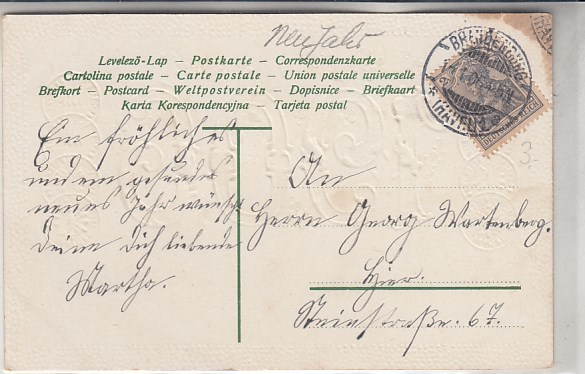 Neujahr
Levelező-Lap – Postkarte – Correspondenzkarte
Cartolina postale – Carte postale – Union postale universelle
Brefkort – Postcard – Weltpostverein – Dopisnice – Briefkaart
Karta Korespondencyjna – Tarjeta postal
BRANDENBURG
(HAVEL)
DEUTSCHES REICH
3.-
Ein fröhliches
und ein gesundes
neues Jahr wünscht
Deine Dich liebende
Martha.
An
Herrn Georg Wartenberg.
Hier.
Steinstraße. 67.